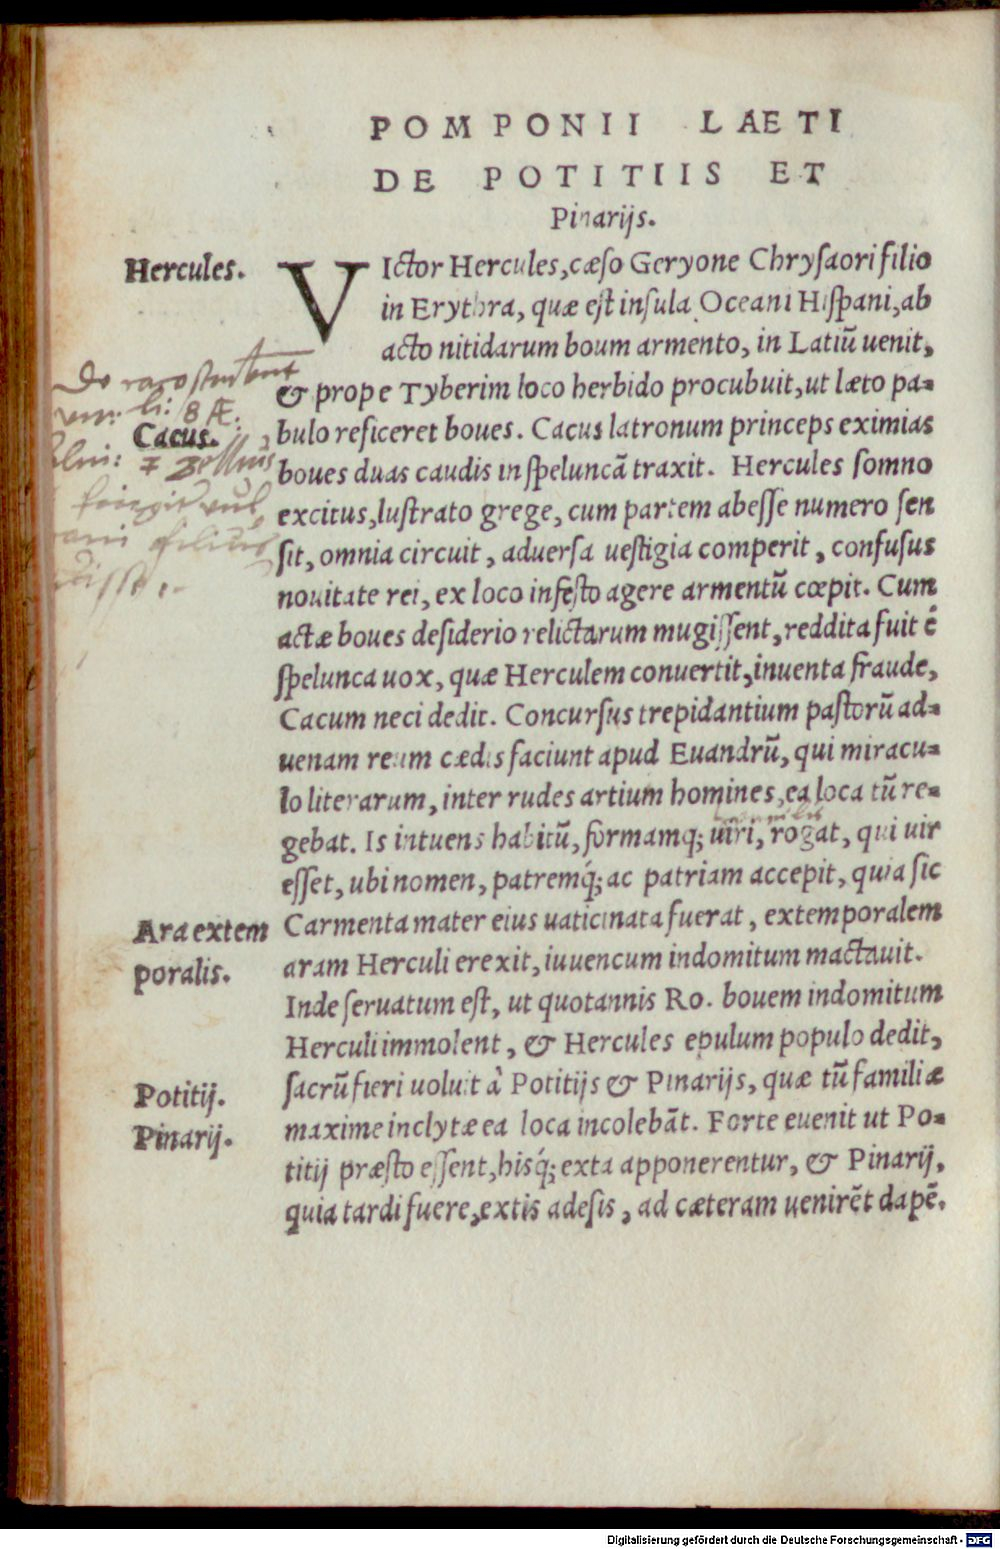 POMPONII LAETI
DE POTITIIS ET
Pinarijs.
Hercules.
VIctor Hercules, cæso Geryone Chrysaori filio
in Erythra, quæ est insula Oceani Hispani, ab
acto nitidarum boum armento, in Latiũ uenit,
& prope Tyberim loco herbido procubuit, ut læto pa-
Cacus.
bulo reficeret boues. Cacus latronum princeps eximias
boues duas caudis in speluncã traxit. Hercules somno
excitus, lustrato grege, cum partem abesse numero sen
sit, omnia circuit, aduersa uestigia comperit, confusus
nouitate rei, ex loco infesto agere armentũ cœpit. Cum
actæ boues desiderio relictarum mugissent, reddita fuit ẽ
spelunca uox, quæ Herculem conuertit, inuenta fraude,
Cacum neci dedit. Concursus trepidantium pastorũ ad-
uenam reum cædis faciunt apud Euandrũ, qui miracu-
lo literarum, inter rudes artium homines, ea loca tũ re-
gebat. Is intuens habitũ, formamq; uiri, rogat, qui uir
esset, ubi nomen, patremq́; ac patriam accepit, quia sic
Ara extem
poralis.
Carmenta mater eius uaticinata fuerat, extemporalem
aram Herculi erexit, iuuencum indomitum mactauit.
Inde seruatum est, ut quotannis Ro. bouem indomitum
Herculi immolent, & Hercules epulum populo dedit,
Potitij.
sacrũ fieri uoluit à Potitijs & Pinarijs, quæ tũ familiæ
Pinarij.
maxime inclytæ ea loca incolebãt. Forte euenit ut Po-
titij præsto essent, hisq́; exta apponerentur, & Pinarij,
quia tardi fuere, extis adesis, ad cæteram uenirẽt dapẽ.
Digitalisierung gefördert durch die Deutsche Forschungsgemeinschaft - DFG